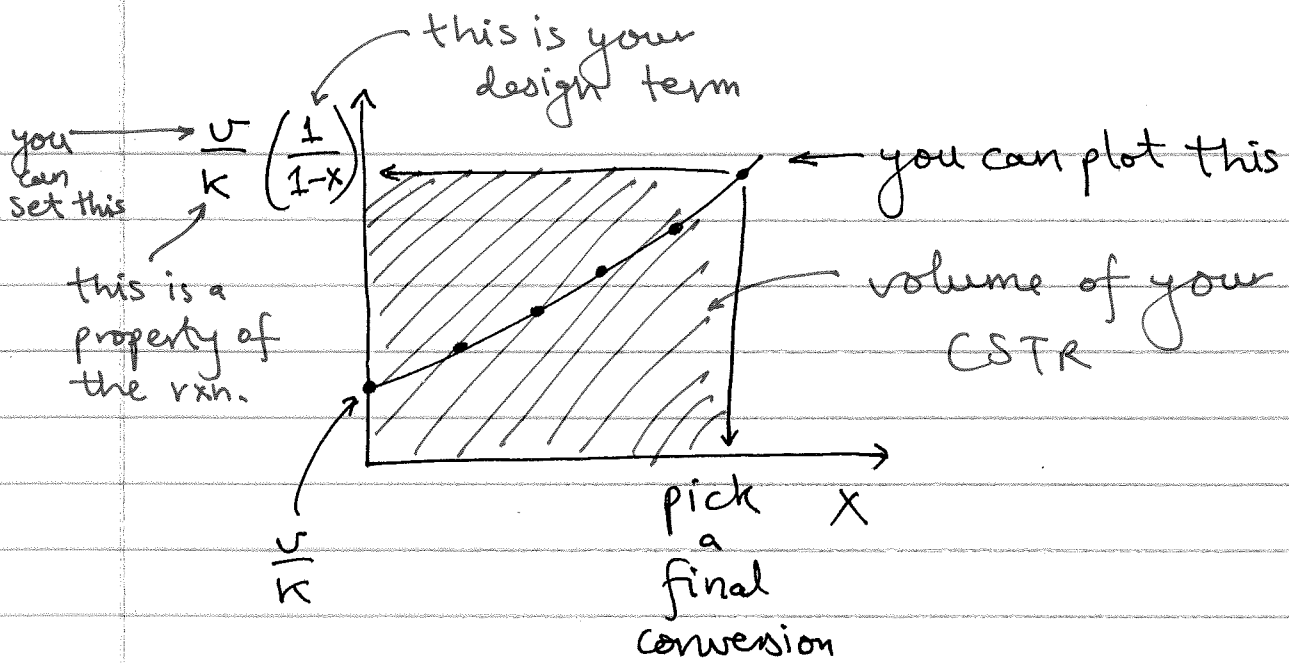 this is your
design term
you
can
set this
υ/k (1/1-x)
you can plot this
this is a
property of
the rxn.
volume of your
CSTR
υ/k
pick
a
final
conversion
X